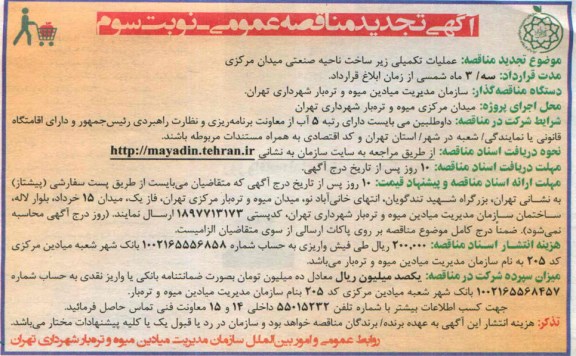 آگهی تجدید مناقصه عمومی - نوبت سوم
موضوع تجدید مناقصه: عملیات تکمیلی زیر ساخت ناحیه صنعتی میدان مرکزی
مدت قرارداد: سه/ ۳ ماه شمسی از زمان ابلاغ قرارداد.
دستگاه مناقصه‌گذار: سازمان مدیریت میادین میوه و تره‌بار شهرداری تهران.
محل اجرای پروژه: میدان مرکزی میوه و تره‌بار شهرداری تهران
شرایط شرکت در مناقصه: داوطلبین می بایست دارای رتبه ۵ آب از معاونت برنامه‌ریزی و نظارت راهبردی رئیس‌جمهور و دارای اقامتگاه
قانونی یا نمایندگی/ شعبه در شهر/ استان تهران و کد اقتصادی به همراه مستندات مربوطه باشند.
نحوه دریافت اسناد مناقصه: از طریق مراجعه به سایت سازمان به نشانی http://mayadin.tehran.ir
مهلت دریافت اسناد مناقصه: ۱۰ روز پس از تاریخ درج آگهی.
مهلت ارائه اسناد مناقصه و پیشنهاد قیمت: ۱۰ روز پس از تاریخ درج آگهی که متقاضیان می‌بایست از طریق پست سفارشی (پیشتاز)
به نشانی تهران، بزرگراه شهید تندگویان، انتهای خانی‌آباد نو، میدان مرکزی میوه و تره‌بار مرکزی تهران، فاز یک، میدان ۱۵ خرداد، بلوار لاله،
ساختمان سازمان مدیریت میادین میوه و تره‌بار شهرداری تهران، کدپستی ۱۸۹۷۷۱۳۱۷۳ ارسال نمایند. (روز درج آگهی محاسبه
نمی‌شود). ضمناً درج کامل موضوع مناقصه بر روی پاکات ارسالی از سوی متقاضیان الزامیست.
هزینه انتشار اسناد مناقصه: ۲۰۰،۰۰۰ ریال طی فیش واریزی به حساب شماره ۱۰۰۲۱۶۵۵۵۶۸۵۸ بانک شهر شعبه میادین مرکزی
کد ۲۰۵ به نام سازمان مدیریت میادین میوه و تره‌بار می‌باشد.
میزان سپرده شرکت در مناقصه: یکصد میلیون ریال معادل ده میلیون تومان بصورت ضمانتنامه بانکی یا واریز نقدی به حساب شماره
۱۰۰۲۱۶۵۵۶۸۴۵۷ بانک شهر شعبه میادین مرکزی کد ۲۰۵ بنام سازمان مدیریت میادین میوه و تره‌بار.
جهت کسب اطلاعات بیشتر با شماره تلفن ۵۵۰۱۵۲۳۲ داخلی ۱۴ و ۱۵ معاونت فنی تماس حاصل فرمائید.
تذکر: هزینه انتشار این آگهی به عهده برنده/ برندگان مناقصه خواهد بود و سازمان در رد یا قبول یک یا کلیه پیشنهادات مختار می‌باشد.
روابط عمومی و امور بین‌الملل سازمان مدیریت میادین میوه و تره‌بار شهرداری تهران